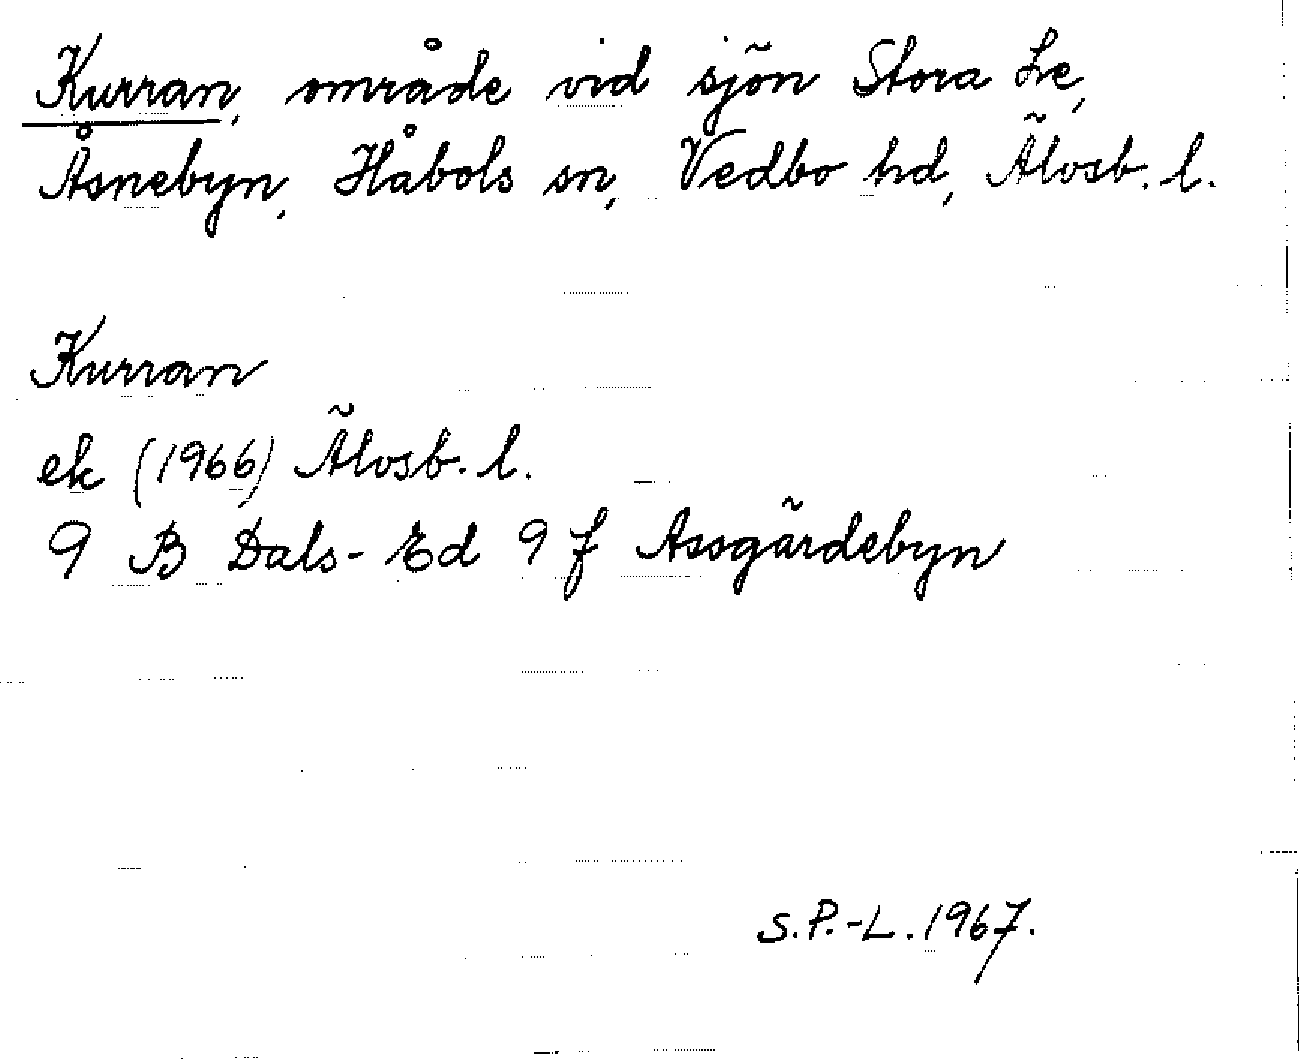 Kurran, område vid sjön Stora Le,
Åsnebyn, Håbols sn, Vedbo hd, Älvsb. l.
Kurran
ek (1966) Älvsb. l.
9 B Dals-Ed 9 f Assgärdebyn
S.P.-L. 1967.